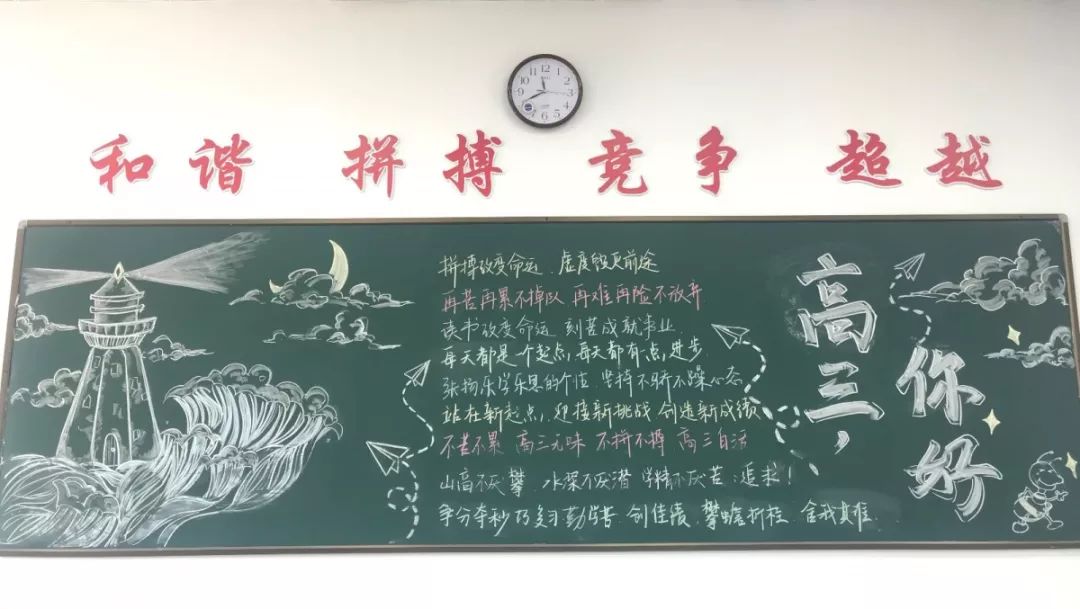 和谐 拼搏 竞争 超越
拼搏改变命运 虚度毁灭前途
再苦再累不掉队 再难再险不放弃
读书改变命运 刻苦成就事业
每天都是一个起点,每天都有一点进步
张扬乐学乐思的个性 坚持不骄不躁心态
站在新起点,迎接新挑战 创造新成绩
不苦不累 高三无味 不拼不搏 高三白活
山高不厌攀,水深不厌潜 学精不厌苦:追求!
争分夺秒巧复习 勤学苦 创佳绩 攀蟾折桂 舍我其谁
高三,
你好